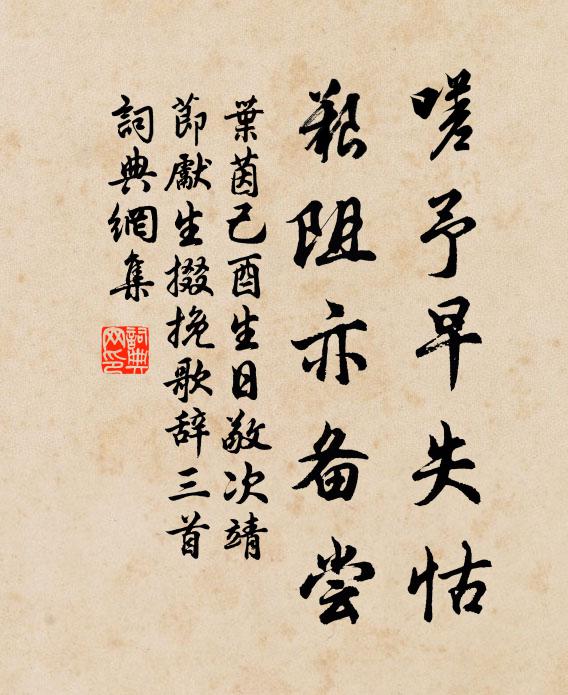 嗟予早失怙
艰阻亦备尝
葉茵己酉生日敬次靖
節獻生掇挽歌辞三首
詞典網集
詞典网印